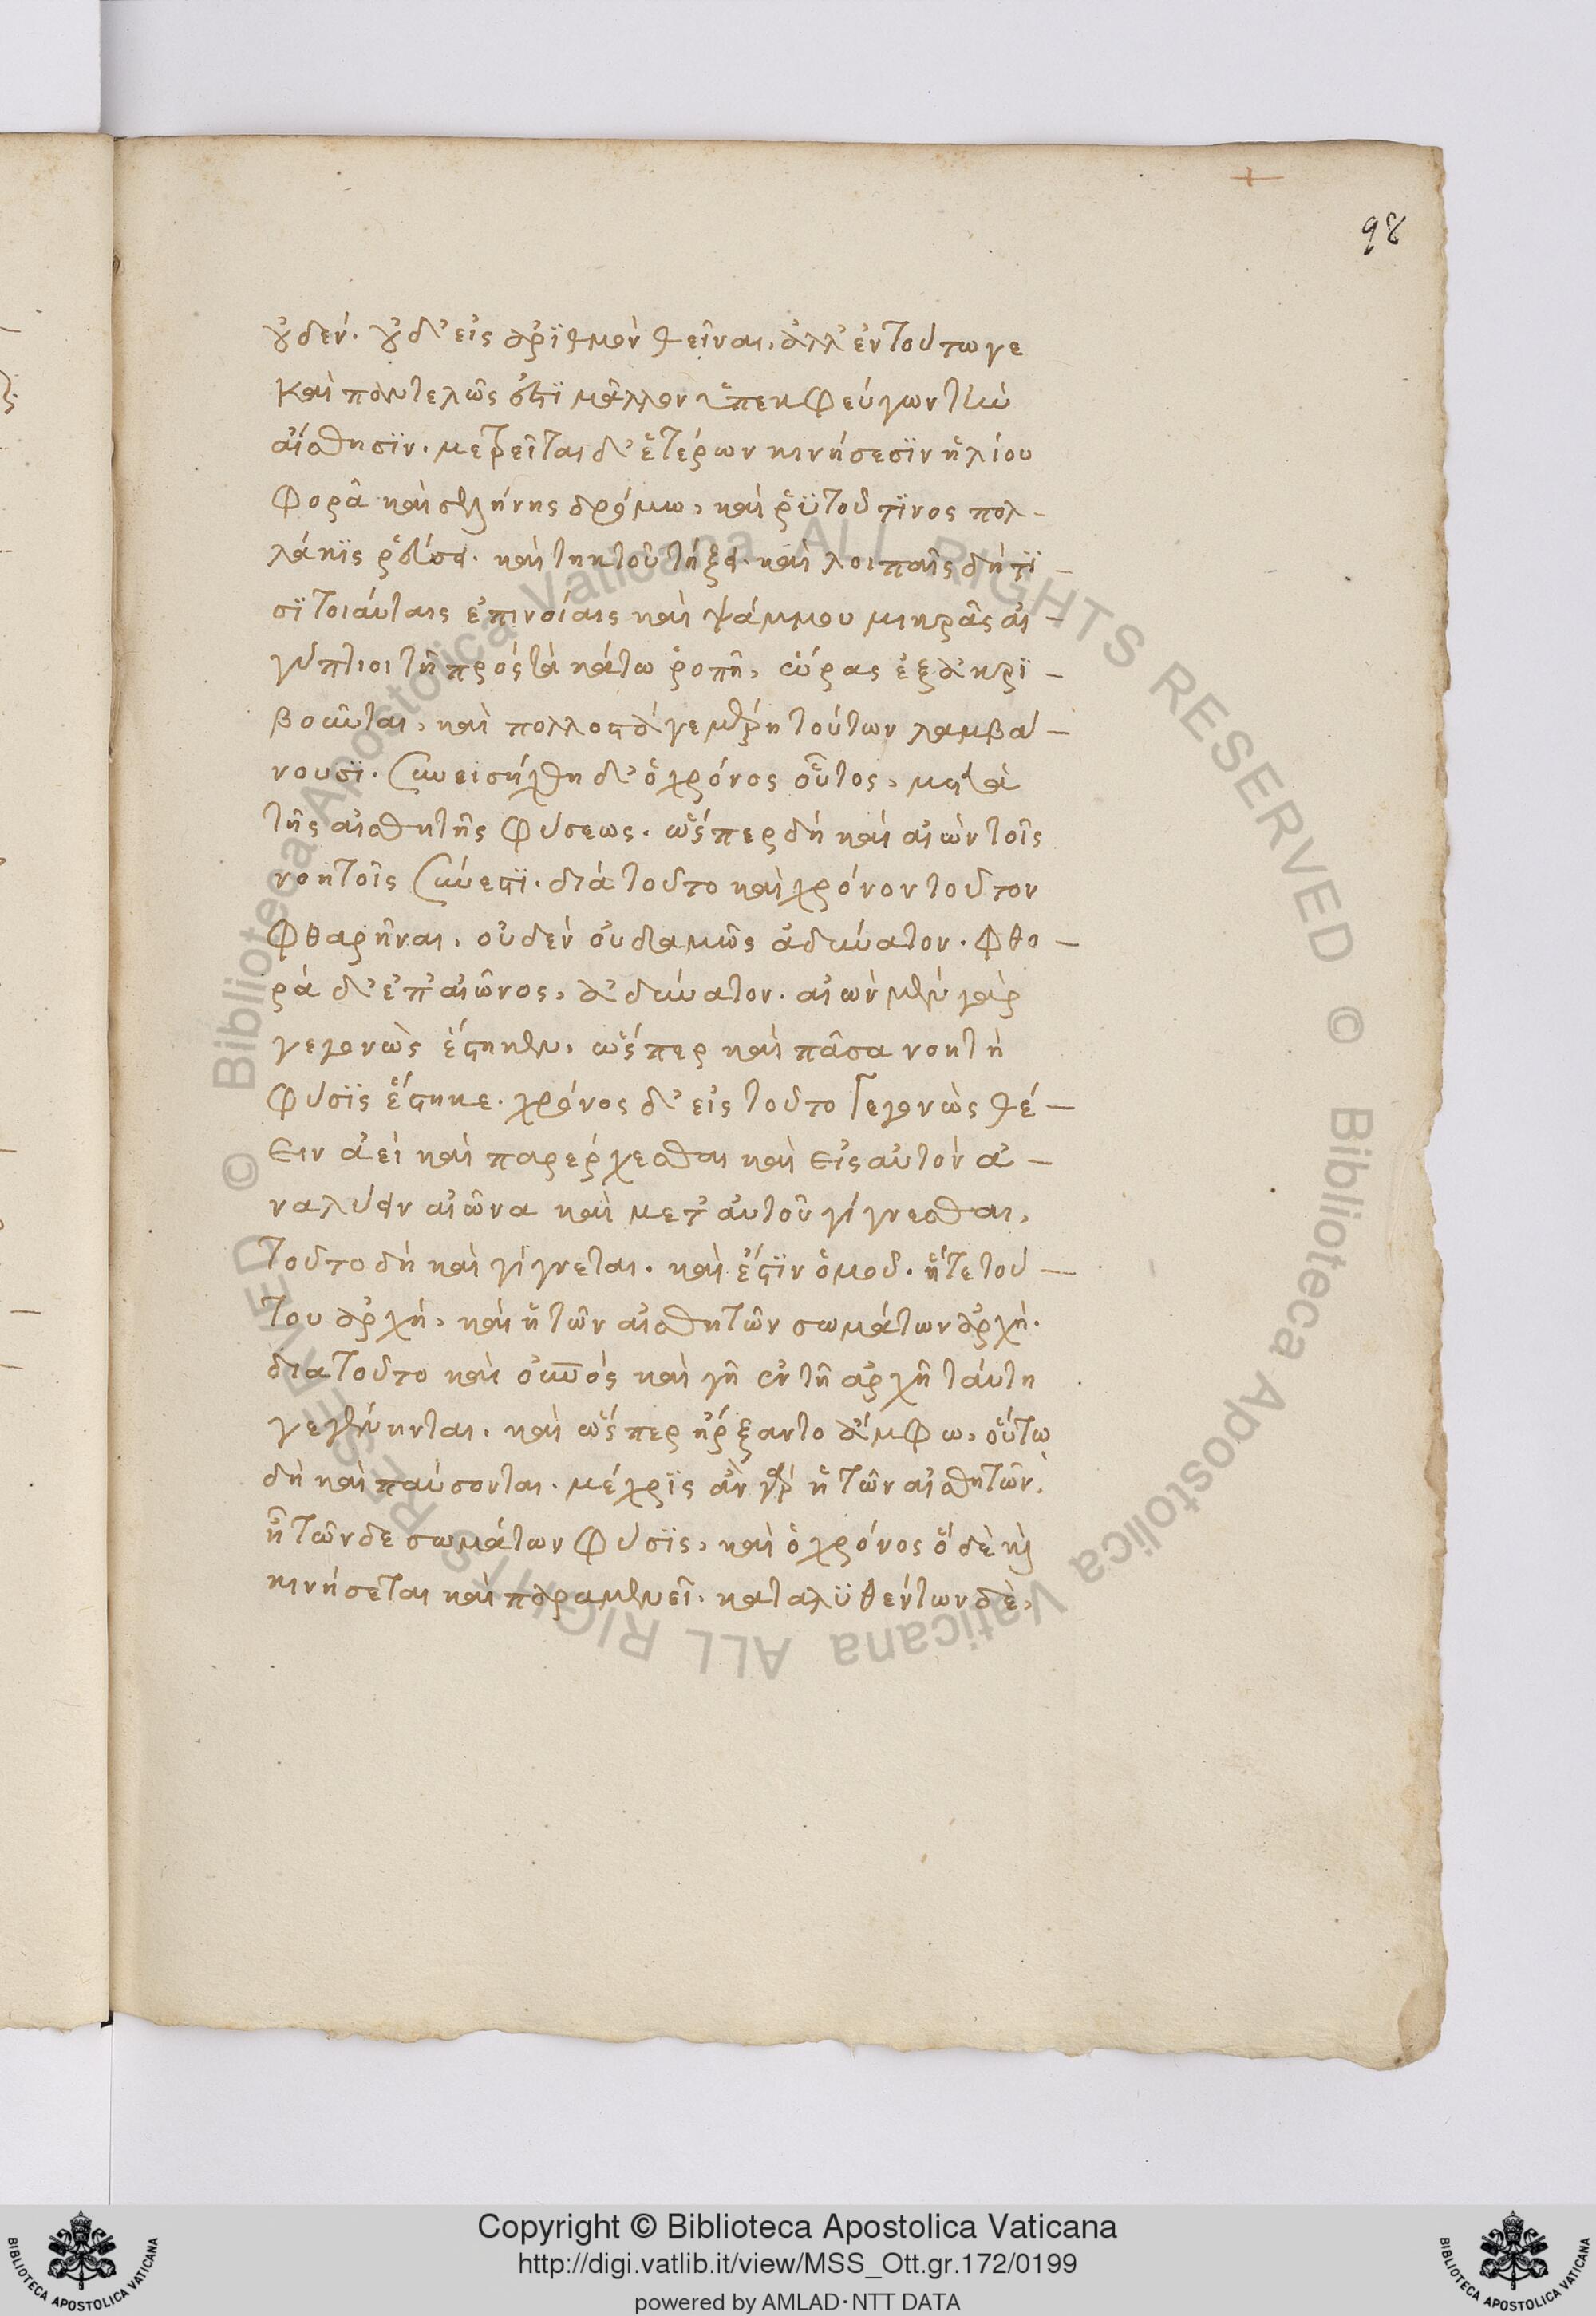 98
οὐδέν. οὐδ' εἰς ἀρϊθμὸν θεῖναι, ἀλλ' ἐν τούτω γε
καὶ παντελῶς ἐστὶ μᾶλλον ὑπεκφεύγων τὴν
αἴσθησϊν. μετρεῖται δ' ἑτέρων κινήσεσϊν ἡλίου
φορᾶ καὶ σελήνης δρόμω, καὶ ῥϋτοῦ τϊνος πολ-
λάκϊς ῥεύσει. καὶ τηκτοῦ τήξει. καὶ λοιπαῖς δή τϊ-
σϊ τοιαύταις ἐπινοίαις καὶ ψάμμου μικρᾶς αἰ-
γύπτιοι τῆ πρός τὰ κάτω ῥοπῆ, ὥρας ἐξακρϊ-
βοῦνται, καὶ πολλοστά γε μέρη τούτων λαμβά-
νουσϊ. συνεισήχθη δ' ὁ χρόνος οὗτος, μετὰ
τῆς αἰσθητῆς φύσεως. ὥσπερ δή καὶ αἰὼν τοῖς
νοητοῖς σύνεστϊ. διὰ τοῦτο καὶ χρόνον τοῦτον
φθαρῆναι, οὐδὲν οὐδαμῶς ἀδύνατον. φθο-
ρά δ' ἐπ' αἰῶνος, ἀδύνατον. αἰὼν μὲν γὰρ
γεγονὼς ἕστηκεν, ὥσπερ καὶ πᾶσα νοητὴ
φύσϊς ἕστηκε. χρόνος δ' εἰς τοῦτο γεγονὼς θέ-
ειν ἀεὶ καὶ παρέρχεσθαι καὶ εἰς αὐτὸν ἀ-
ναλύειν αἰῶνα καὶ μετ' αὐτοῦ γίγνεσθαι,
τοῦτο δὴ καὶ γίγνεται. καὶ ἔστϊν ὁμοῦ. ἥ τε τού-
του ἀρχή, καὶ ἡ τῶν αἰσθητῶν σωμάτων ἀρχή.
διατοῦτο καὶ οὐνος καὶ γῆ ἐν τῆ ἀρχῆ ταύτη
γεγένηνται. καὶ ὥσπερ ἤρξαντο ἄμφω, οὕτω
δὴ καὶ παύσονται. μέχρϊς ἂν γὰρ ἦ τῶν αἰσθητῶν,
ἢ τῶνδε σωμάτων φύσϊς, καὶ ὁ χρόνος ὅδε καὶ
κινήσεται καὶ παραμενεῖ. καταλϋθέντων δὲ,
Copyright © Biblioteca Apostolica Vaticana
http://digi.vatlib.it/view/MSS_Ott.gr.172/0199
powered by AMLAD·NTT DATA
BIBLIOTECA APOSTOLICA VATICANA
BIBLIOTECA APOSTOLICA VATICANA
© Biblioteca Apostolica Vaticana ALL RIGHTS RESERVED © Biblioteca Apostolica Vaticana ALL RIGHTS RESERVED